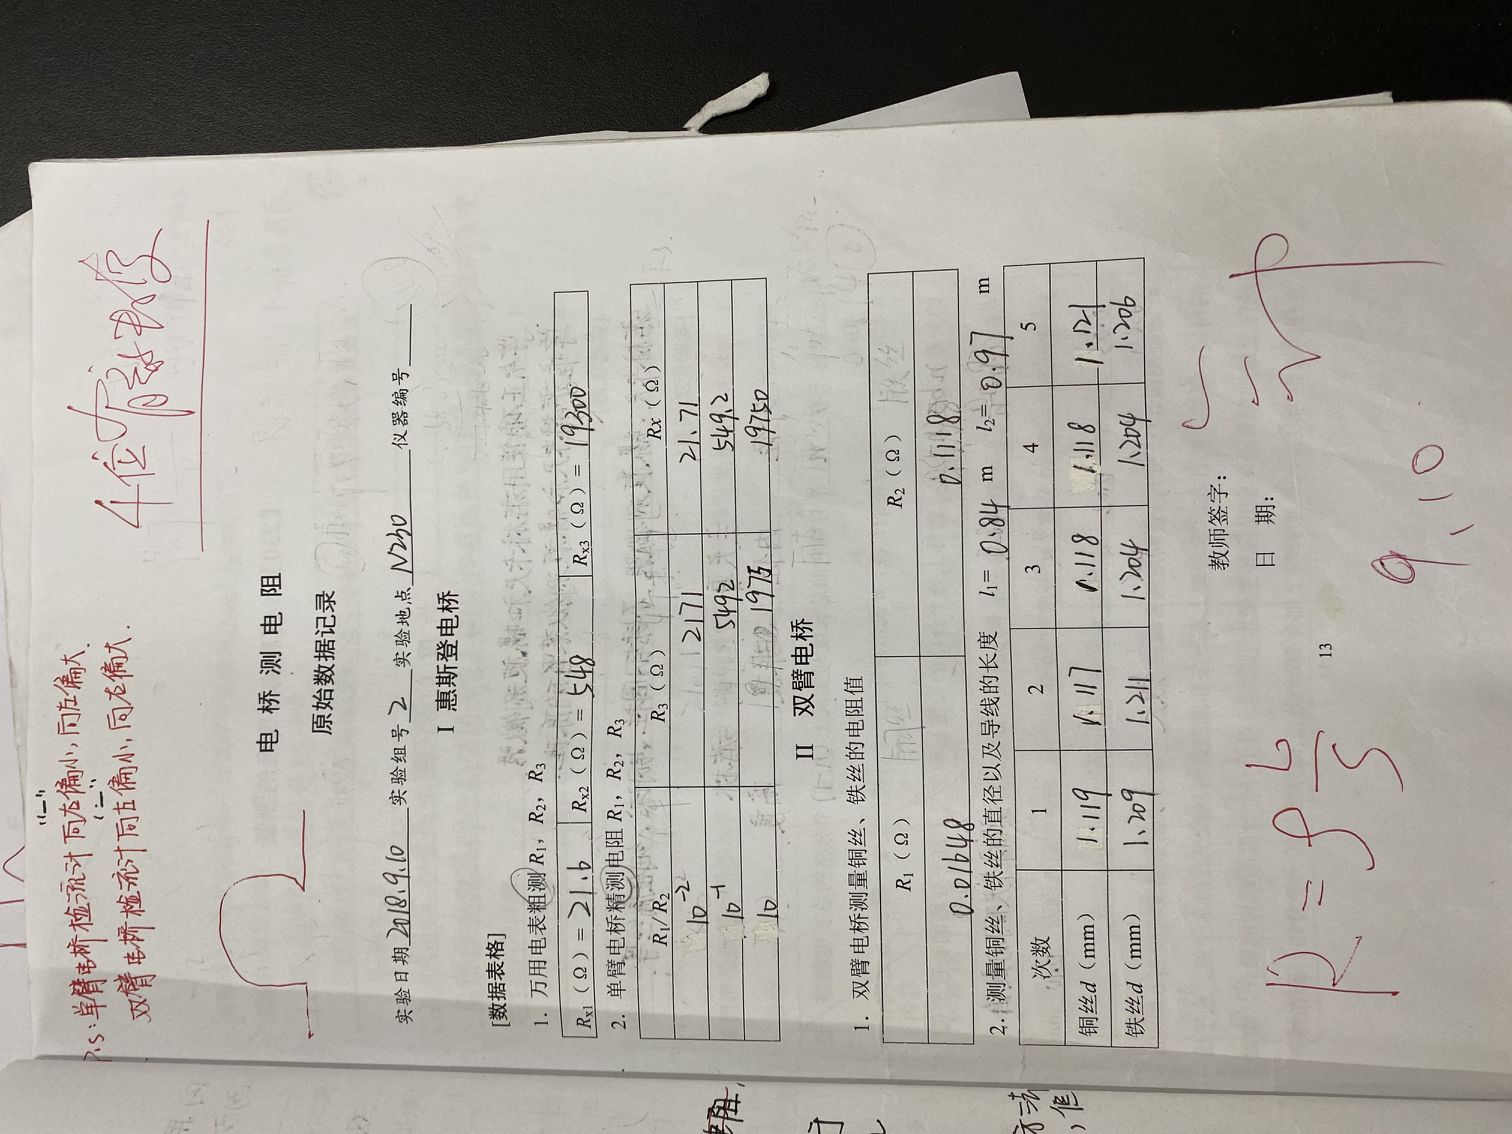 "一"
P.S:单臂电桥检流计向右偏小,向左偏大.
"二"
双臂电桥检流计向左偏小,向右偏大.
4位有效数字
电桥测电阻
原始数据记录
实验日期2018.9.10 实验组号2 实验地点N230 仪器编号
I 惠斯登电桥
[数据表格]
1. 万用电表粗测 R1, R2, R3
Rx1(Ω)= 21.6 Rx2(Ω)= 548 Rx3(Ω)= 19300
2. 单臂电桥精测电阻 R1, R2, R3
R1/R2 R3(Ω) Rx(Ω)
10⁻² 2171 21.71
10⁻¹ 5492 549.2
10 1975 19750
II 双臂电桥
1. 双臂电桥测量铜丝、铁丝的电阻值
R1(Ω) 铜丝 R2(Ω) 铁丝
0.01648 0.1118
2. 测量铜丝、铁丝的直径以及导线的长度 l1= 0.84 m l2= 0.97 m
次数 1 2 3 4 5
铜丝d(mm) 1.119 1.117 1.118 1.118 1.121
铁丝d(mm) 1.209 1.211 1.204 1.204 1.206
教师签字:
日 期:
R = ρ L/S
13
9.10